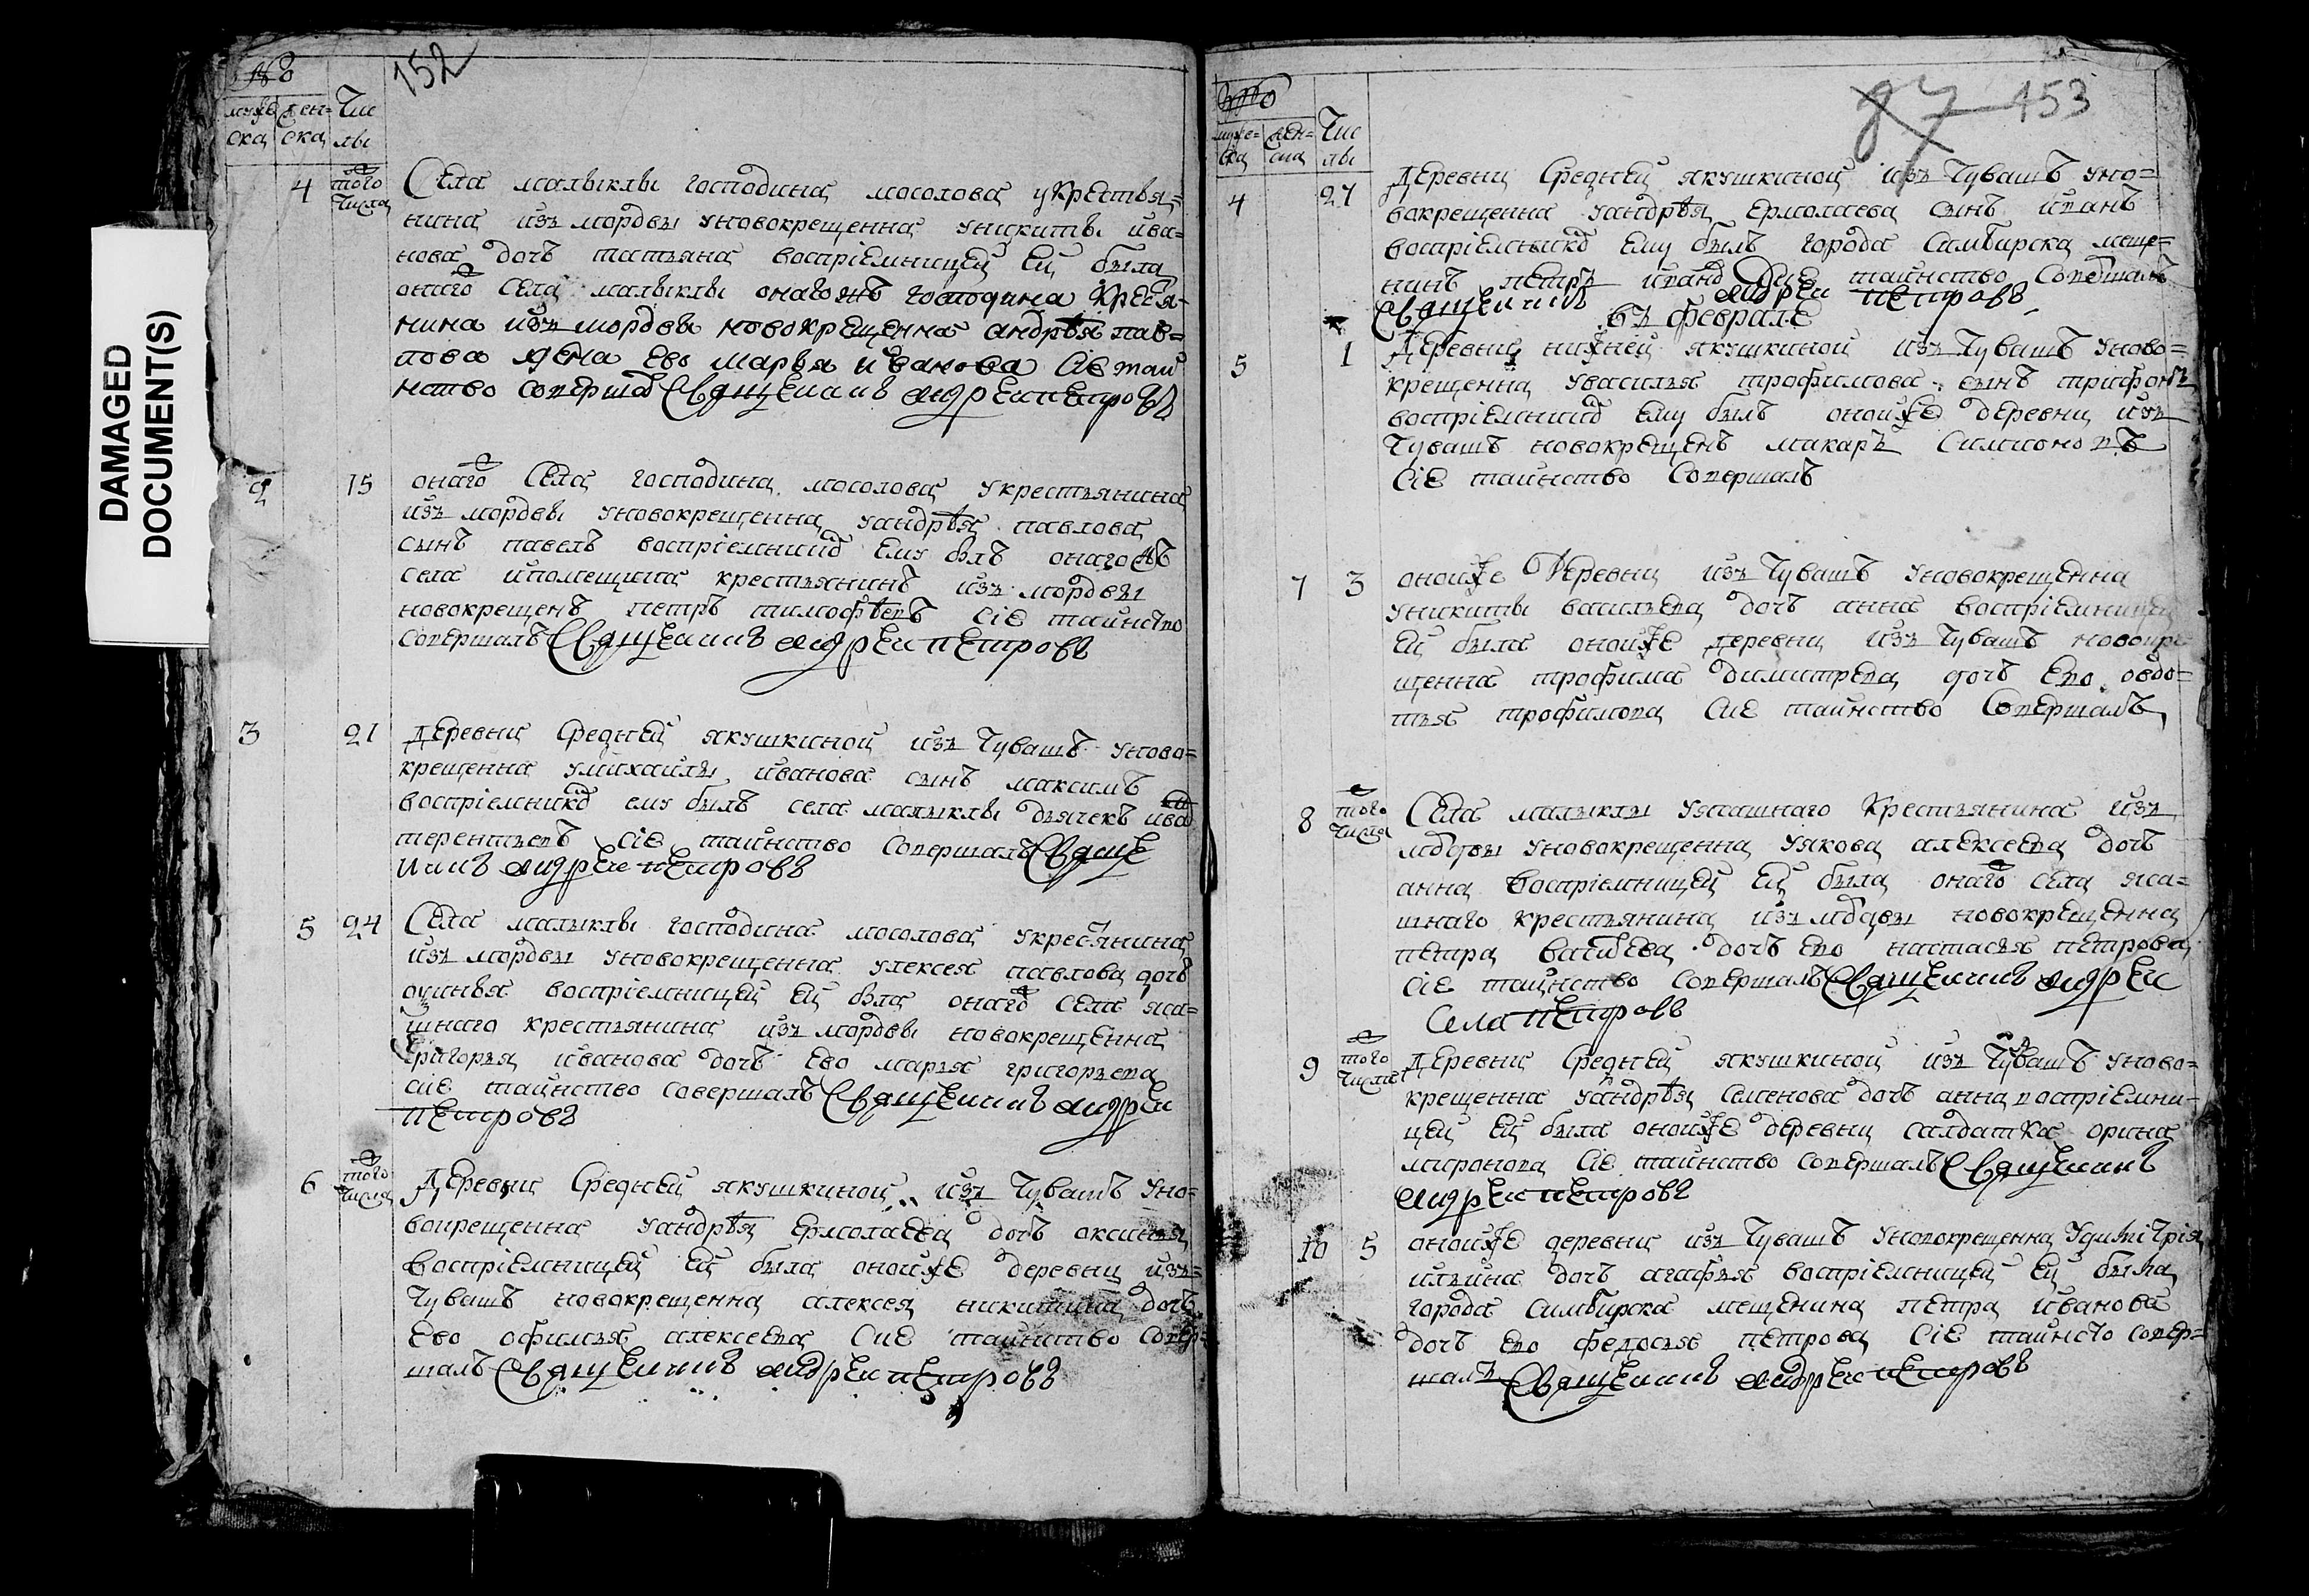 DAMAGED
DOCUMENT(S)
152
№
муже
ска
жен=
ска
Чис
лы
4
тогожъ
числа
Села малыклы господина мосолова укрестья=
нина изъ мордвы уновокрещенна уникиты ива=
нова дочь татьяна воспріемницей ей была
оногожъ села малыклы онагожъ господина крестья=
нина изъ мордвы новокрещенна андрѣя пав=
лова жена ево марья иванова сіе таи
нство совершалъ Священникъ андреи петровъ
2
15
онагожъ села господина мосолова укрестьянина
изъ мордвы уновокрещенна уандрѣя павлова
сынъ павелъ воспріемникъ ему былъ онагожъ
села ипомещика крестьянинъ изъ мордвы
новокрещенъ петръ тимофѣевъ сіе таинство
совершалъ Священникъ андреи петровъ
3
21
деревни средней якушкиной изъ чувашъ уново=
крещенна умихайлы иванова сынъ максимъ
воспріемникъ ему былъ села малыклы дьячекъ иванъ
терентьевъ сіе таинство совершалъ Свяще
нникъ андреи петровъ
5
24
Села малыклы господина мосолова укрестьянина
изъ мордвы уновокрещенна улексея павлова дочь
воспріемницей ей была онагожъ села яса=
шнаго крестьянина изъ мордвы новокрещенна
григорья иванова дочь ево марья григорьева
сіе таинство совершалъ Священникъ андреи
петровъ
6
тогожъ
числа
Деревни средней якушкиной изъ чувашъ уно=
вокрещенна уандрѣя ермолаева дочь оксинья
воспріемницей ей была оной же деревни изъ=
чувашъ новокрещенна алексея никитина дочь
ево офимья алексеева сие таинство совер=
шалъ Священникъ андреи петровъ
87 153
№
муже=
ска
жен=
ска
Чис
лы
4
27
Деревни средней якушкиной изъ чувашъ уно=
вокрещенна уандрѣя ермолаева сынъ иванъ
воспріемникъ ему былъ города симбирска меще=
нинъ петръ ивановъ Сие таинство совершалъ
Священникъ андреи петровъ
въ феврале
5
1
Деревни нижней якушкиной изъ чувашъ уново=
крещенна увасилья трофимова сынъ трифонъ
воспріемникъ ему былъ оной же деревни изъ
чувашъ новокрещенъ макаръ симионовъ
сіе таинство совершалъ
7
3
оной же деревни изъ чувашъ уновокрещенна
уникиты васильева дочь анна воспріемницей
ей была оной же деревни изъ чувашъ новокре
щенна трофима димитрева дочь ево овдо=
тья трофимова сие таинство совершалъ
8
тогожъ
числа
Села малыклы уясашнаго крестьянина изъ
мордвы уновокрещенна уякова алексеева дочь
анна воспріемницей ей была онагожъ села яса=
шнаго крестьянина изъ мордвы новокрещенна
петра дочь ево настасья петрова
сіе таинство совершалъ Священникъ андреи
Села петровъ
9
тогожъ
числа
Деревни средней якушкиной изъ чувашъ уново=
крещенна уандрѣя семенова дочь анна воспріемни=
цей ей была оной же деревни салдатка орина
миронова сіе таинство совершалъ Священникъ
андреи петровъ
10
5
оной же деревни изъ чувашъ уновокрещенна удмитрія
ильина дочь агафья воспріемницей ей была
города симбирска мещенина петра иванова
дочь ево федосья петрова сіе таинсто совер=
шалъ Священникъ андреи петровъ